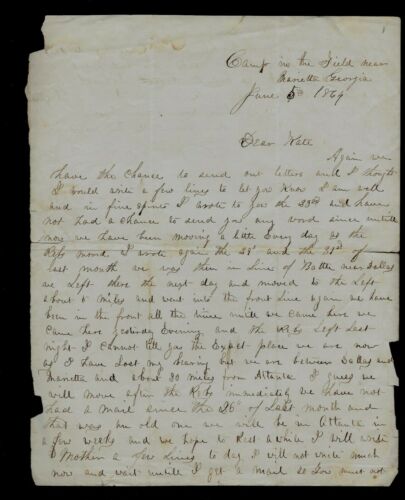 Camp in the Field near
Marietta Georgia
June 5th 1864
Dear Kate
Again we
have the Chance to send out letters and I thought
I would write a few lines to let you Know I am well
and in fine spirits I wrote to you the 23rd and have
not had a chance to send you any word since untill
now we have been moving a little Every day as the
Rebs moved I wrote again the 29 and the 31st of
last month we was then in Line of Battle near Dallas
we Left there the next day and moved to the Left
about 5 Miles and went into the front Line again we have
been in the front all the time untill we came here we
came here yesterday Evening and the Rebs Left Last
night I Cannot tell you the Expect place we are now
as I have Lost my bearing but we are between Dallas and
Marietta and about 30 miles from Atlanta I guess we
will move after the Rebs immediately we have not
had a Mail since the 26th of Last month and
that was an old one we will be in Atlanta in
a few weeks and we hope to Rest a while I will write
Mother a few Lines to day I will not write much
now and wait untill I get a Mail so you must not